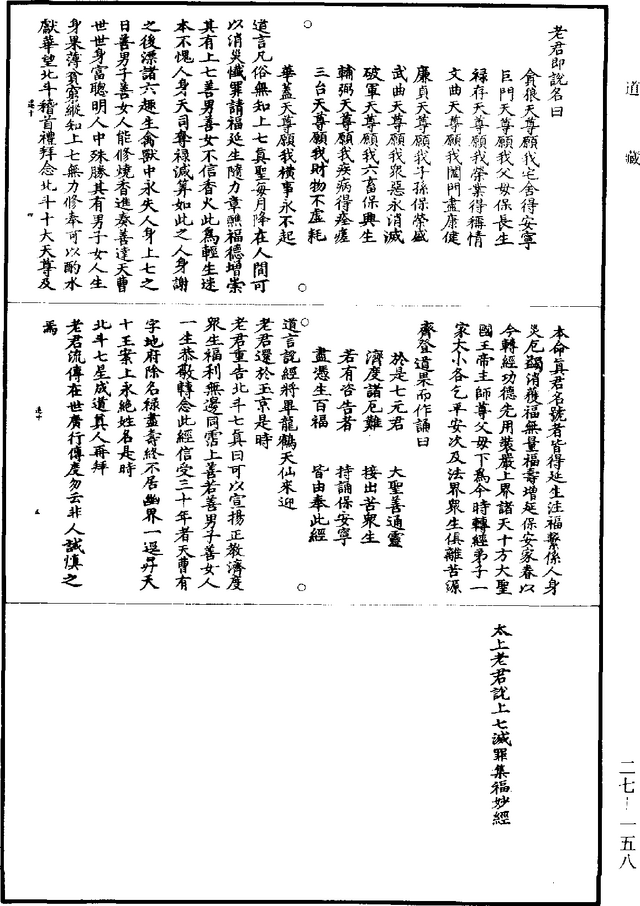 道藏
老君即說名曰
貪狼天尊願我宅舍得安寧
巨門天尊願我父母保長生
祿存天尊願我榮業得稱情
文曲天尊願我閨門盡康健
廉貞天尊願我子孫保榮盛
武曲天尊願我眾惡永消滅
破軍天尊願我六畜保興生
輔弼天尊願我疾病得痊瘥
三台天尊願我財物不虛耗
華蓋天尊願我橫事永不起
道言凡俗無知上七真聖每月降在人間可
以消災懺罪請福延生隨力章醮福德增崇
其有上七善男善女不信香火此為輕生迷
本不愧人身天司奪祿減算如此之人身謝
之後漂諸六趣生禽獸中永失人身上七之
日善男子善女人能修燒香進奏善達天曹
世世身富聰明人中殊勝其有男子女人生
身果薄貧窮縱知上七無力修奉可以酌水
獻華望北斗稽首禮拜念北斗十大天尊及
本命真君名號者皆得延生注福繫係人身
災厄蠲消獲福無量福壽增延保安家眷以
今轉經功德先用裝嚴上界諸天十方大聖
國王帝主師尊父母下為今時轉經弟子一
家大小各乞平安次及法界眾生俱離苦源
齊登道果而作誦曰
於是七元君 大聖善通靈
濟度諸厄難 接出苦眾生
若有咨告者 持誦保安寧
盡憑生百福 皆由奉此經
道言說經將畢龍鶴天仙來迎
老君還於玉京是時
老君重告北斗七真曰可以宣揚正教濟度
眾生福利無邊同霑上善若善男子善女人
一生恭敬轉念此經信受三十年者天曹有
字地府除名祿盡壽終不居幽界一逕昇天
十王案上永絕姓名是時
北斗七星成道真人再拜
老君流傳在世廣行傳度勿云非人誠慎之
焉
太上老君說上七滅罪集福妙經
二七—一五八